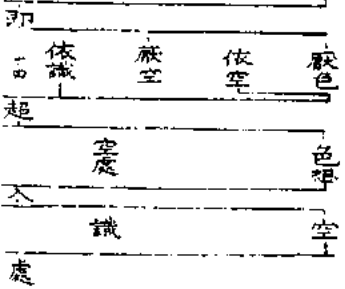 即
厭色
依空
厭空
依識
超
色想
空處
入
空
識
處